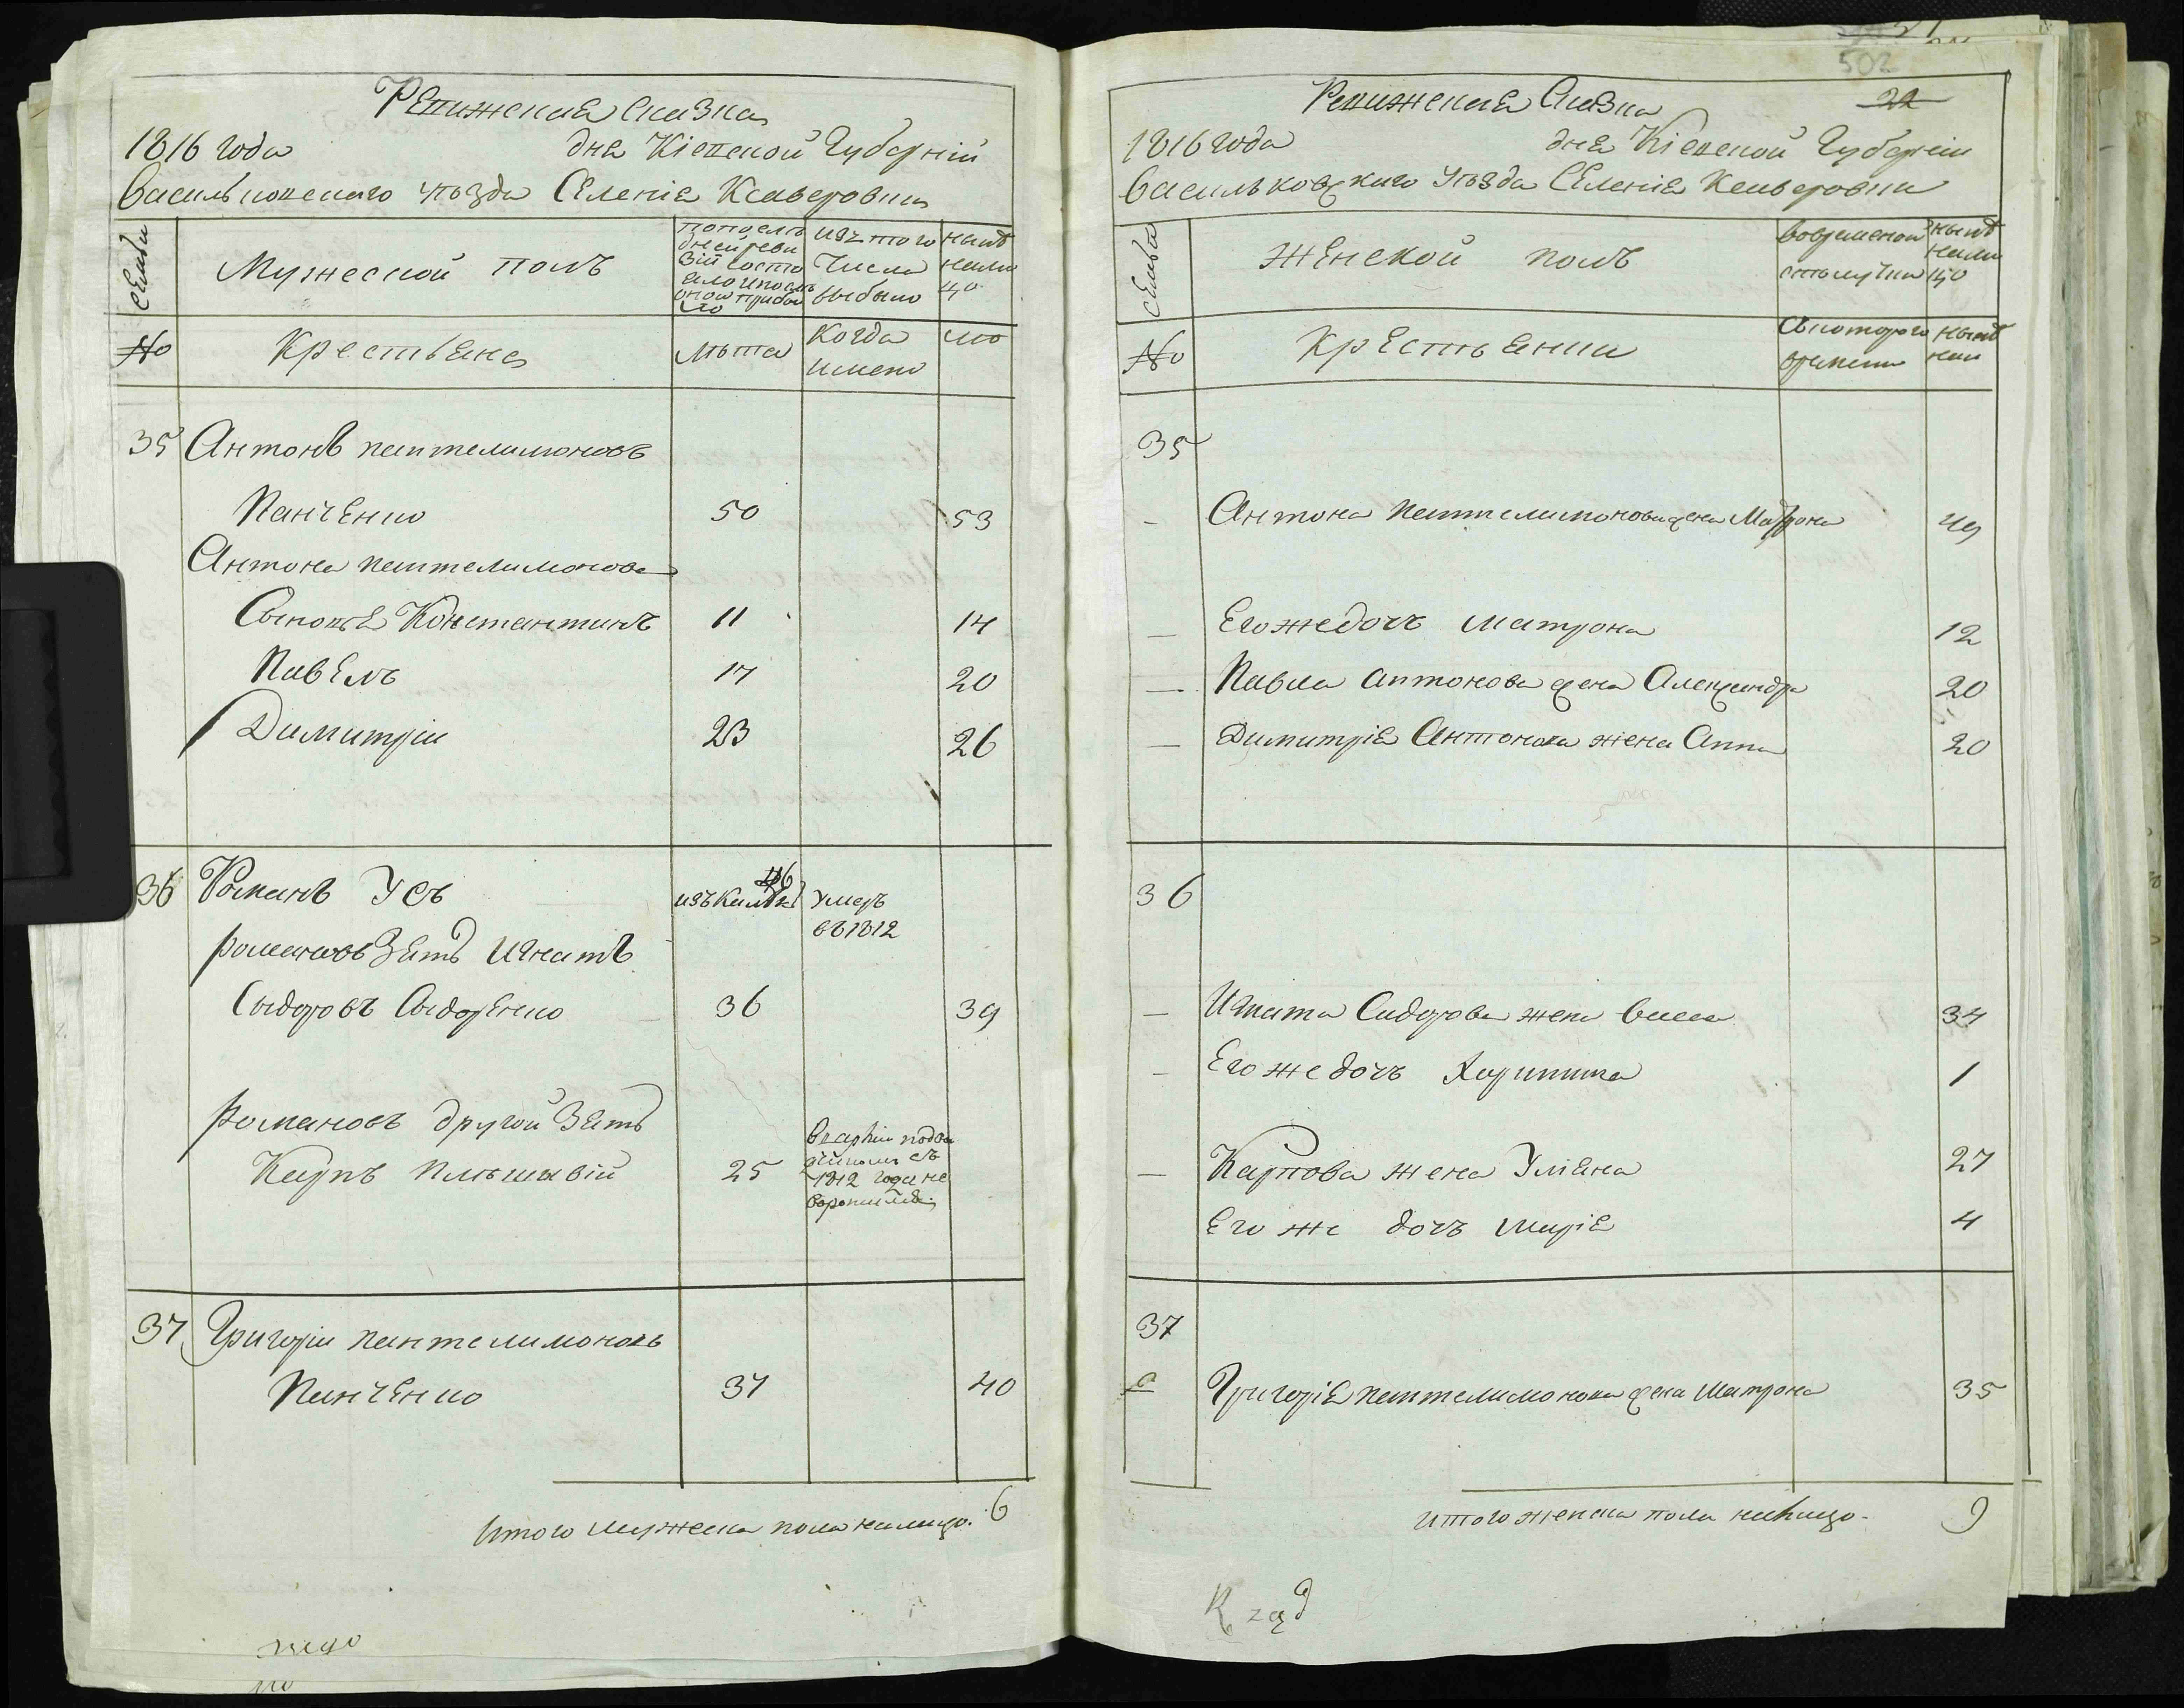 Ревижская сказка
1816 года дня Кіевской Губерніи
Васильковского уѣзда Селенія Ксаверовки
Семьи
Мужеской полъ
по послѣ
дней реви
зій состо
яло и послѣ
оной прибы
ло
изъ того
числа
выбыло
нынѣ
нали
цо
№
Крестьяне
лѣта
когда
имено
лѣ
35 Антонъ пантелимоновъ
Панченко 50 53
Антона пантелимонова
Сыновья Константинъ 11 14
Павелъ 17 20
Димитрій 23 26
36 Романъ Усъ умеръ
въ 1812
романовъ Зять Игнатъ
Сыдоровъ Сыдоренко 36 39
романовъ другой Зять
Карпъ 25
1812 года не
37 Григорій пантелимоновъ
Панченко 37 40
Итого мужеска пола налицо. 6
502
22
Ревижская Сказка
1816 года дня Кіевской Губерніи
Васильковского Уѣзда Селенія Ксаверовки
Семьи
Женской полъ
во временной
отлучки
нынѣ
нали
цо
№
Крестьянки
съ которого
времени
нынѣ
35
— Антона Пантелимонова жена Матрона 49
— Его же дочъ Матрона 12
— Павла Антонова жена Александра 20
— Димитрія Антонова жена Анна 20
36
— Игната Сидорова жена Васса 34
— Его же дочъ Харитина 1
— Карпова жена Уліяна 27
Его же дочъ Марія 4
37
Григорія пантелимонова жена Матрона 35
Итого женска пола налицо. 9